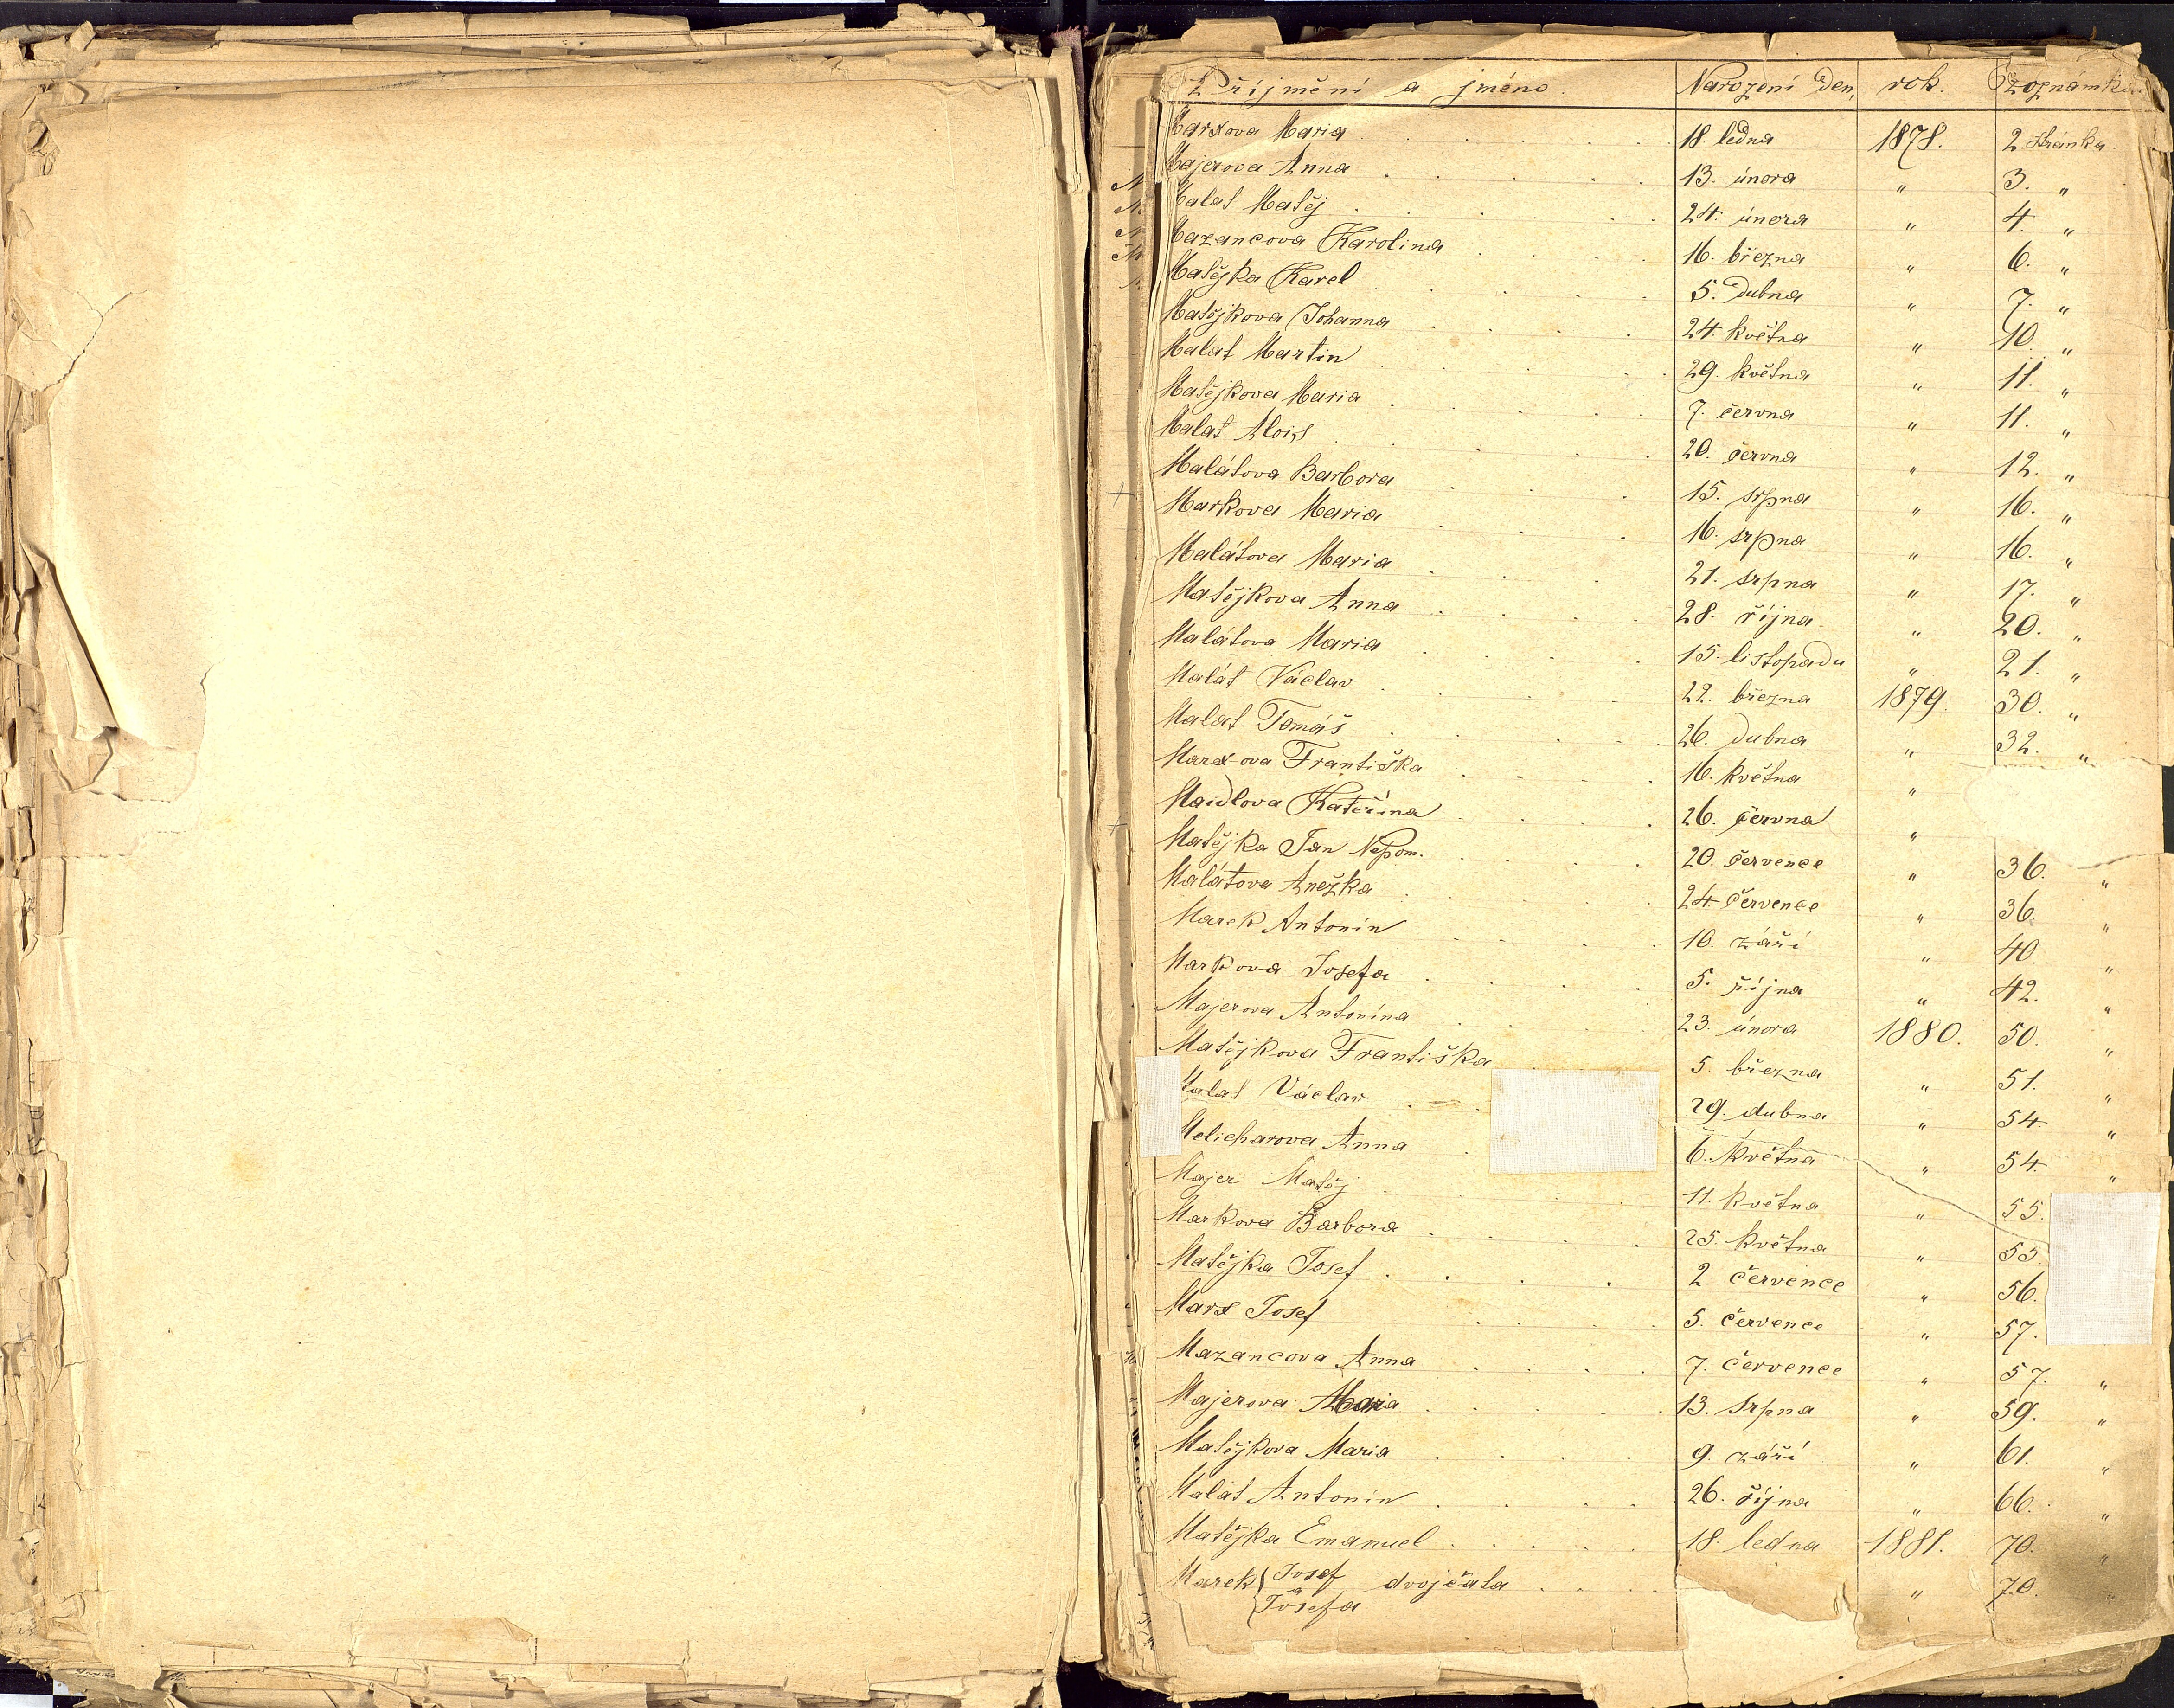 Příjmění a jméno. Narození den, rok. Poznámka
Marxova Maria 18. ledna 1878. 2. stránka
Majerova Anna 13. února " 3. "
Malat Matěj 24. února " 4. "
Mazancova Karolina 16. března " 6. "
Matějka Karel 5. dubna " 7. "
Matějkova Johanna 24. května " 10. "
Malat Martin 29. května " 11. "
Matějkova Maria 7. června " 11. "
Malat Alois 20. června " 12. "
Malátova Barbora 15. srpna " 16. "
Markova Maria 16. srpna " 16. "
Malátova Maria 21. srpna " 17. "
Matějkova Anna 28. října " 20. "
Malátova Maria 15. listopadu " 21. "
Malát Václav 22. března 1879. 30. "
Malat Tomáš 26. dubna " 32. "
Marxova Františka 16. května "
Maidlova Kateřina 26. června "
Matějka Jan Nepom. 20. července " 36. "
Malátova Anežka 24. července " 36. "
Marek Antonín 10. září " 40. "
Markova Josefa 5. října " 42. "
Majerova Antonína 23. února 1880. 50. "
Matějkova Františka 5. března " 51. "
Malat Václav 29. dubna " 54. "
Melicharova Anna 6. května " 54. "
Majer Matěj 11. května " 55.
Markova Barbora 25. května " 55.
Matějka Josef 2. července " 56.
Marx Josef 5. července " 57.
Mazancova Anna 7. července " 57. "
Majerova Maria 13. srpna " 59. "
Matějkova Maria 9. září " 61. "
Malát Antonín 26. října " 66. "
Matějka Emanuel 18. ledna 1881. 70. "
Marek { Josef a dvojčata " 70. "
Josefa